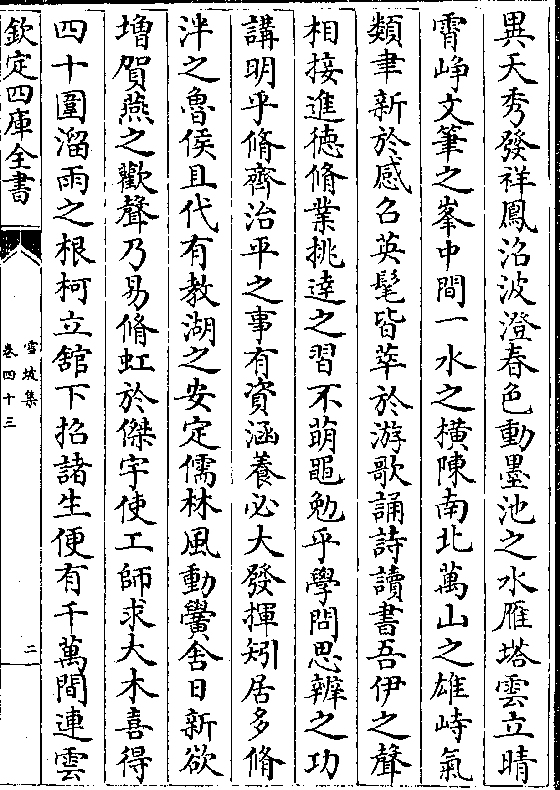 異天秀發祥鳳沼波澄春色動墨池之水雁塔雲立晴
霄崢文筆之峯中間一水之橫陳南北萬山之雄峙氣
類聿新於感召英髦皆萃於游歌誦詩讀書吾伊之聲
相接進德脩業挑達之習不萌黽勉乎學問思辨之功
講明乎脩齊治平之事有資涵養必大發揮矧居多脩
泮之魯侯且代有教湖之安定儒林風動黌舍日新欲
増賀燕之歡聲乃易脩虹於傑宇使工師求大木喜得
四十圍溜雨之根柯立舘下招諸生便有千萬間連雲
欽定四庫全書
雪坡集
卷四十三
二